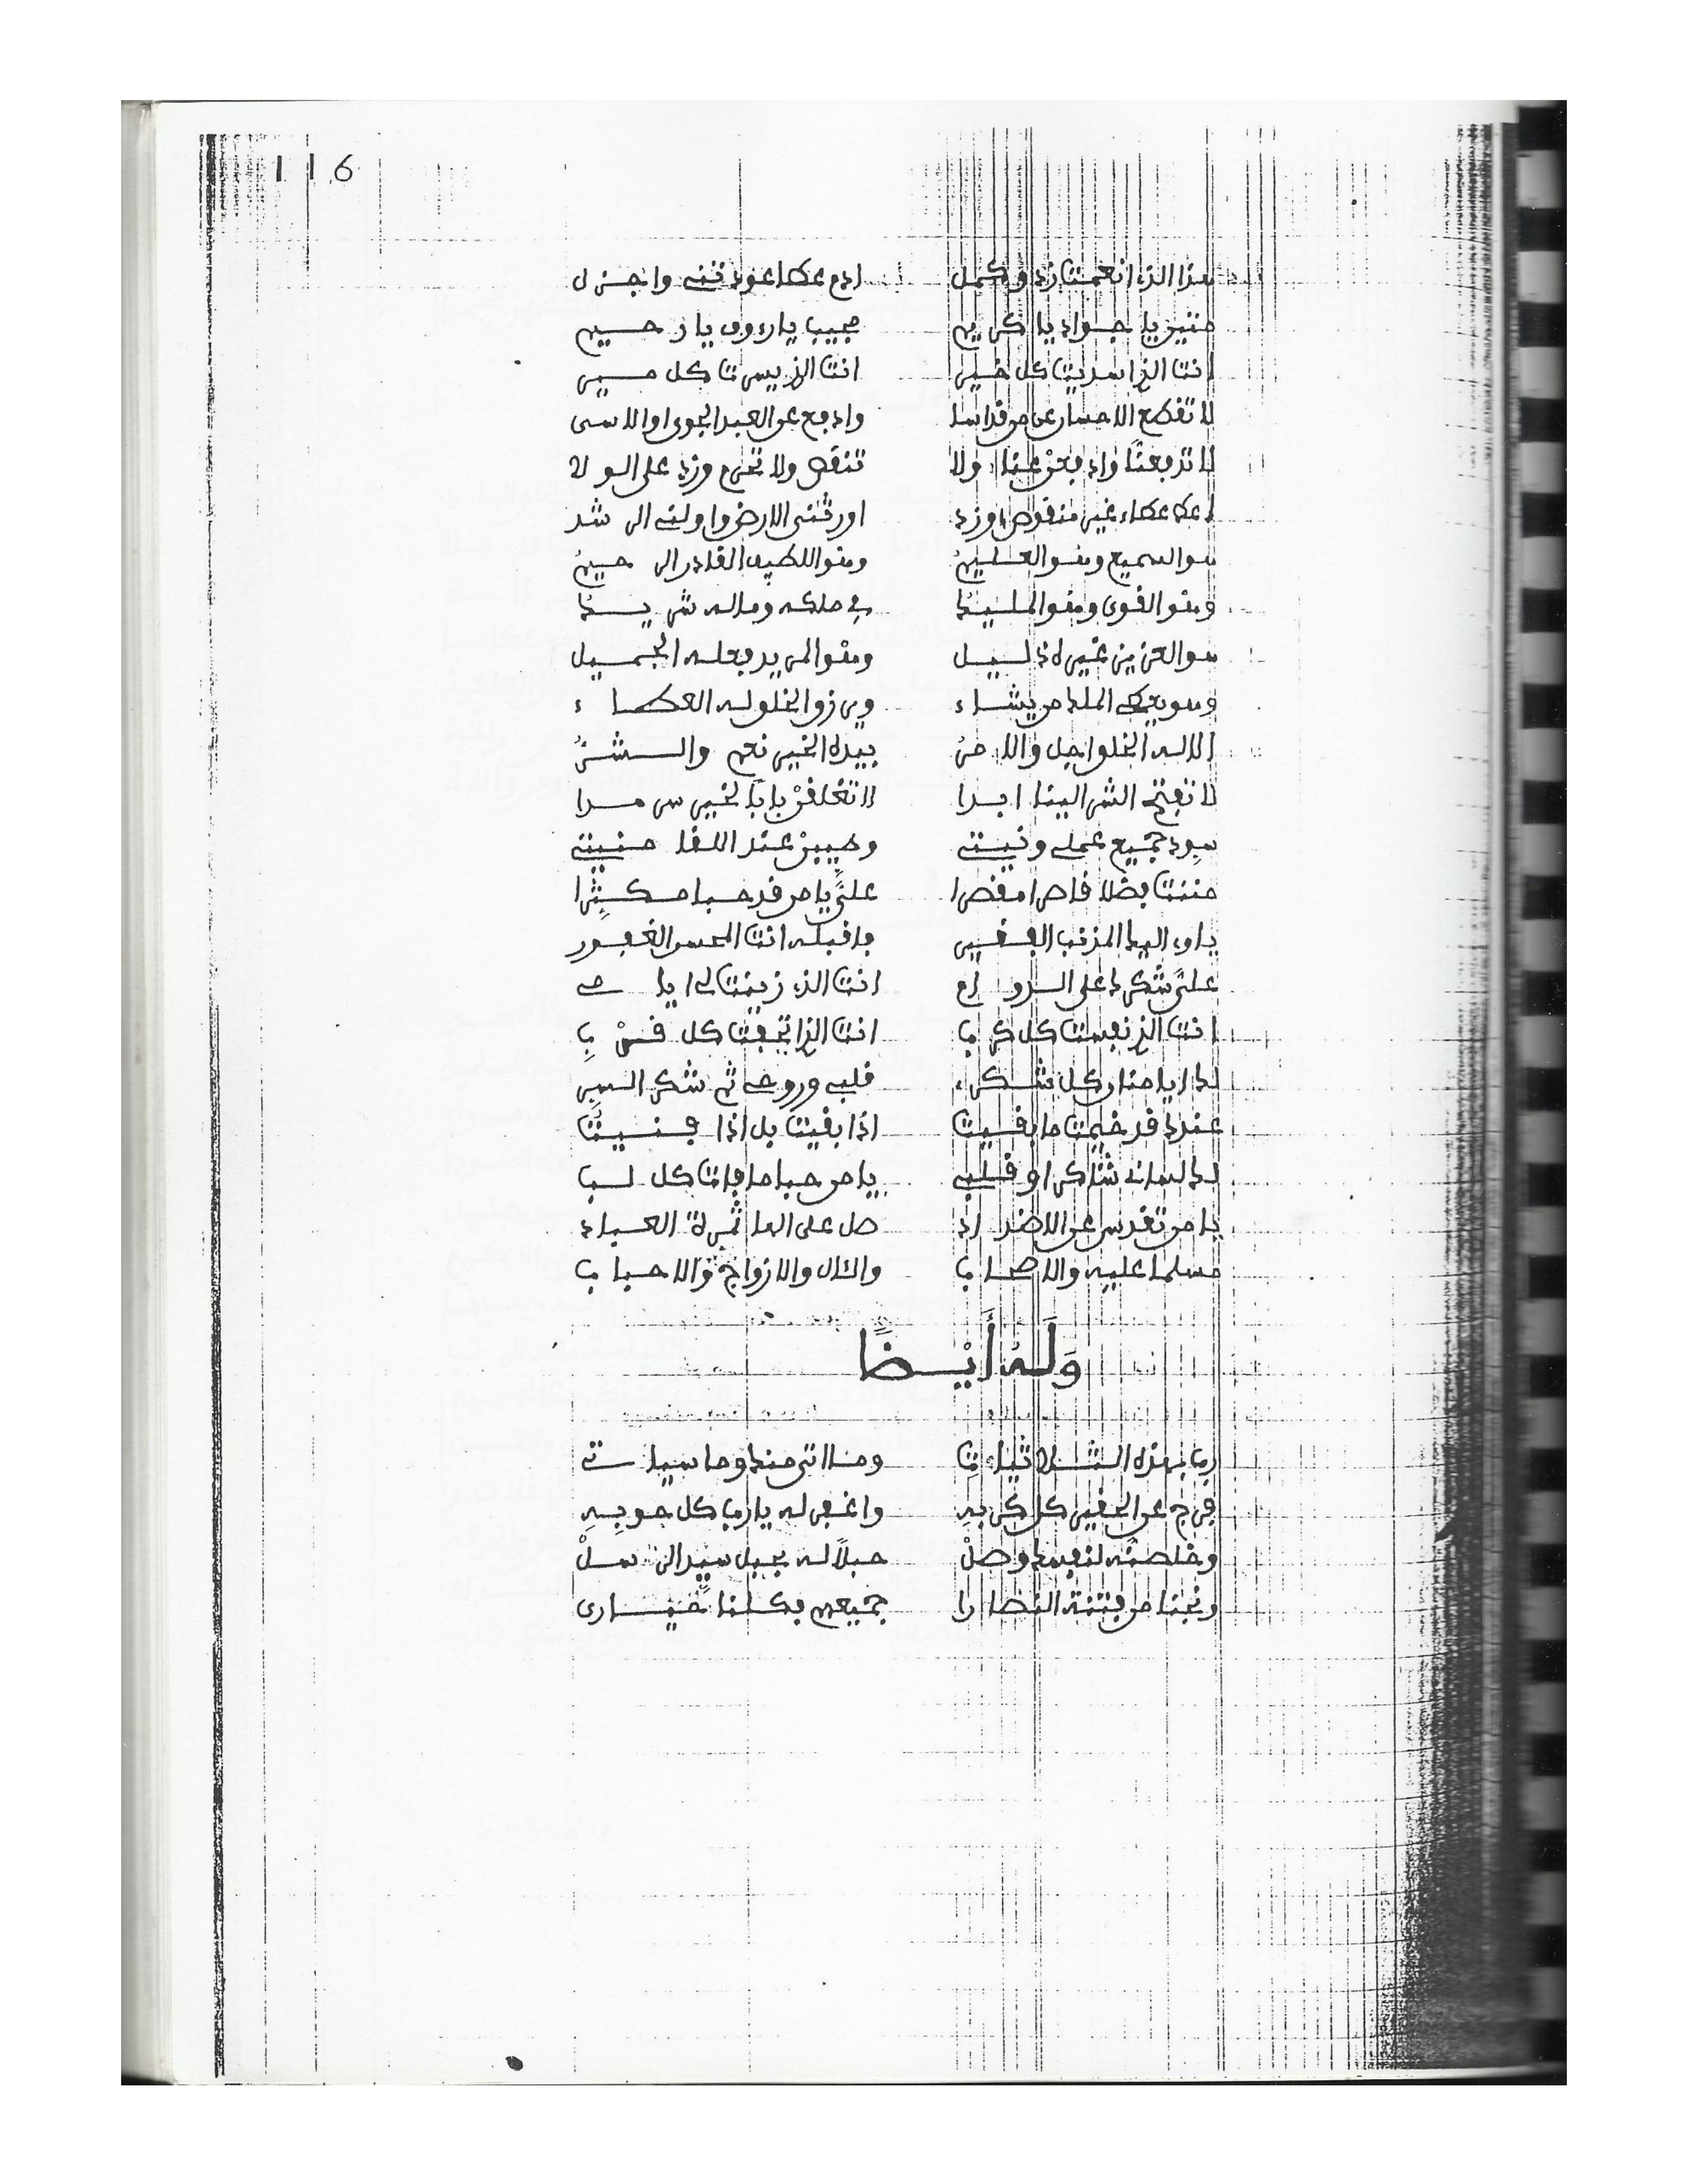 116
هذا الذي انعمت زد وكمل ادم عطاء عودتنيه واجزل
يا جواد يا كريم مجيب يا رءوف يا رحيم
انت الذي اسديت كل خير انت الذي يسرت كل سير
لا تقطع الاحسان عن من قد اسا وادفع عن العبد الجوى او الاسى
لا ترفعنا وادفعن عنا ولا تنقص ولا تحرم وزد على الولا
عطاء غير منقوص وزد اورثتني الارض
هو السميع وهو العليم وهو اللطيف القادر الرحيم
وهو القوي وهو المليك في ملكه وما له شريك
هو العزيز غيره ذليل وهو المريد فعله الجميل
وهو يعطي الملك من يشاء ويرزق الخلق له العطاء
الا له الخلق اجل والامر بيده الخير نعم والشر
لا تفتح الشر الينا ابدا لا تغلقن بابا لخير سرمدا
جميع عملي ونيتي وطيبن عند اللقا منيتي
مننت فضلا علي يا من قد حبا مكثرا
ياوي اليك المذنب الفقير فاقبله انت المحسن الغفور
علي شكرك على الدوام انت الذي زينت لي
انت الذي نفست كل كرب انت الذي اتحفت كل قرب
لك ايا منان كل شكر قلبي وروحي ثم شكر السر
عندك قد خيمت ما بقيت اذا بقيت بل اذا فنيت
لك لساني شاكر او قلبي يا من حبا ما فات كل لب
يا من تقدس عن الاضداد صل على الماحي العباد
مسلما عليه والاصحاب والال والازواج والاحباب
وَلَهُ أَيْضًا
رب بهذه الثلاثيات وما اتى منك وما سياتي
فرج عن الحقير كل كربه واغفر له يا رب كل حوبه
وخلصنه لنفسك وصل حبلا له بحبل سيد الرسل
ونجنا من فتنة النصارى جميعهم فكلنا حيارى